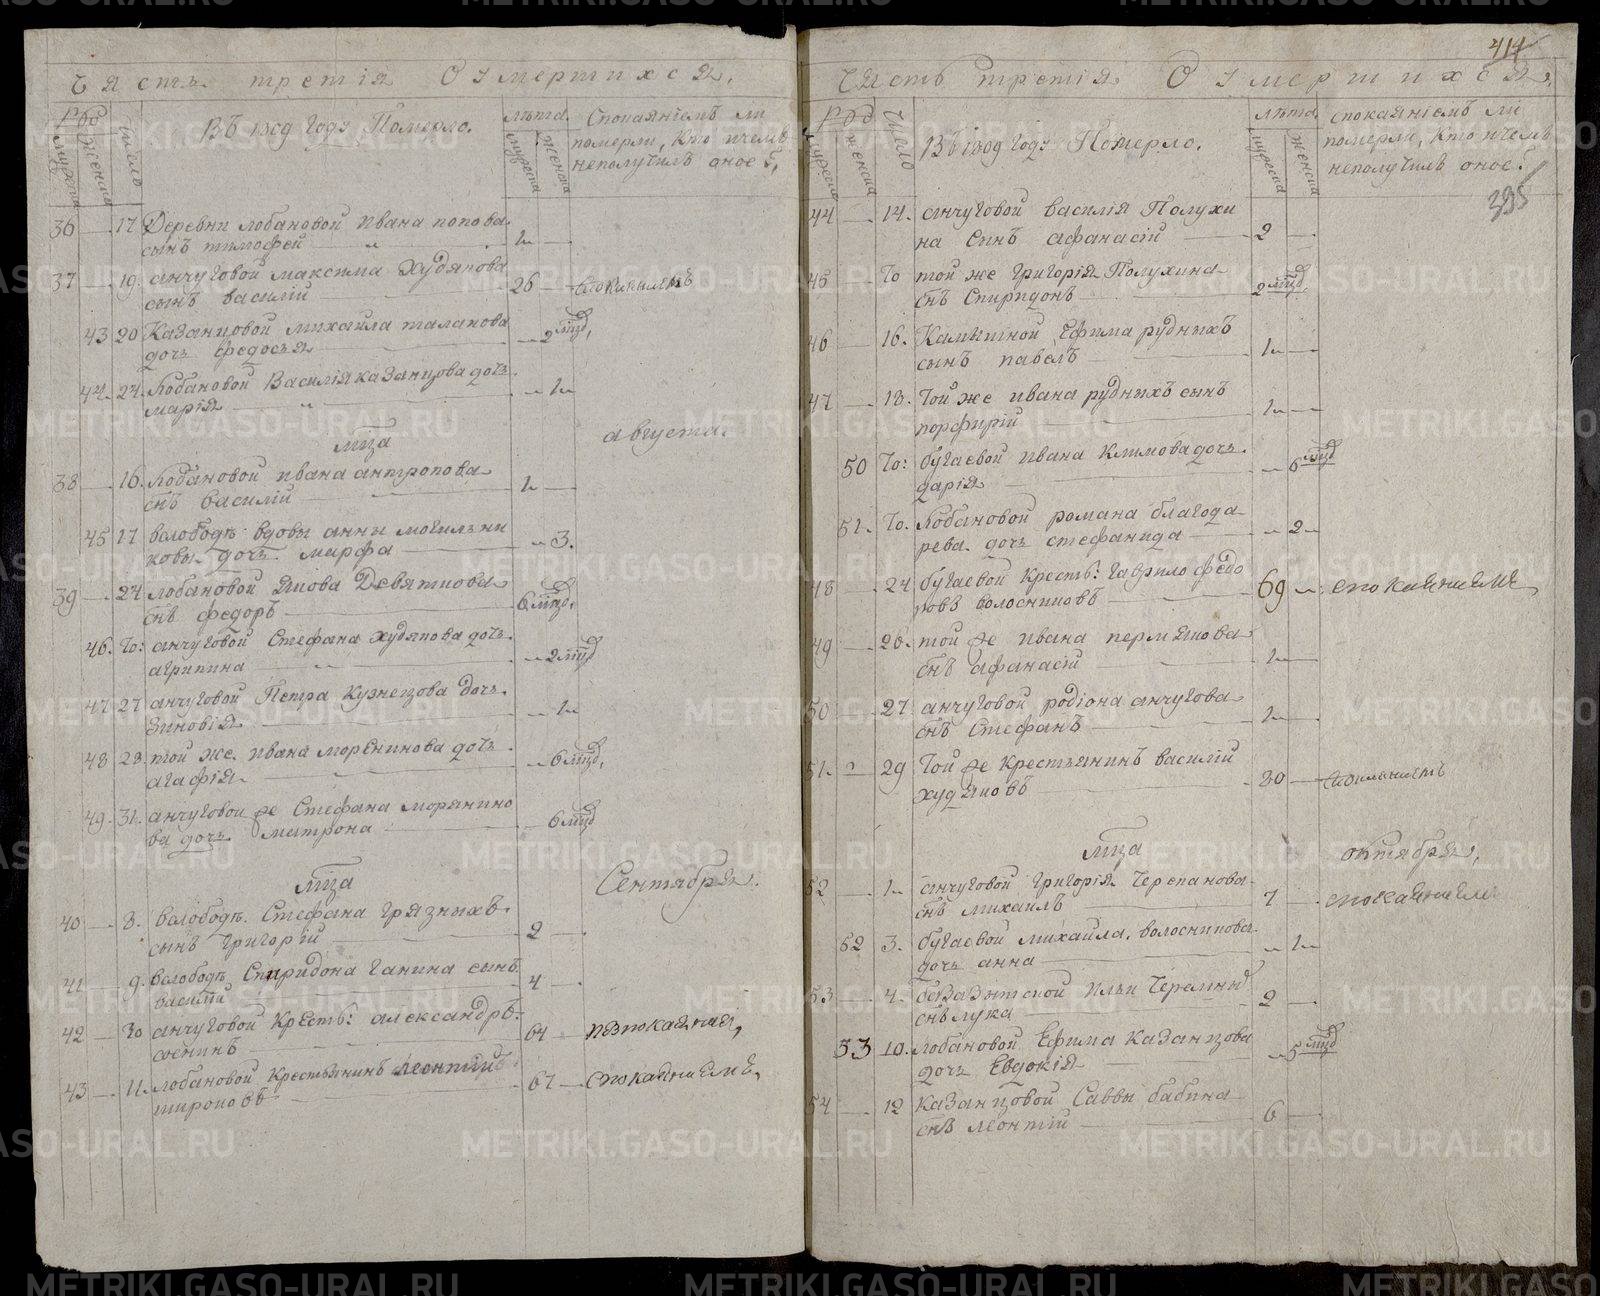 Часть третія О умершихся.
Род
мужеска
женска
число
Въ году Померло.
лѣта.
мужеска
женска
Спокаяніемъ ли
померли, Кто и чемъ
неполучилъ оное?
36 17 Деревни лобановой Ивана попова
сынъ тимофей 1
37 19. анчуговой максима худякова
сынъ василій 26
43 20 Казанцовой михайла таланова
дочь федосья 2 мцд,
44. 24. Лобановой Василія казанцова дочь
марія 1
мца августа.
38 16. Лобановой ивана антропова
снъ василій 1
45 17 волободъ вдовы анны могильни
ковы дочь марфа 3.
39 24 лобановой якова Девяткова
снъ федоръ 6 мцд,
46. То: анчуговой Стефана худякова дочь
агрипина 2 мцд
47 27 анчуговой Петра Кузнецова дочь
Зиновія 1
48 28. той же ивана морянинова дочь
агафія 6 мцд,
49. 31. анчуговой же Стефана морянино
ва дочь матрона 6 мцд
мца Сентября.
40 8. волободъ. Стефана Грязныхъ
сынъ григорій 2
41 9. волободъ. Спиридона Ганина сынъ
василій 4
42 10 анчуговой Крестъ: александръ
64
43 11. лобановой Крестьянинъ леонтий
широковъ 67 спокаяниемъ,
414
Часть третія О умершихся.
Род
мужеска
женска
число
Въ годѵ Померло.
лѣта.
мужеска
женска
спокаяніемъ ли
померли, Кто ичемъ
неполучилъ оное?
395
44 14. анчуговой василія Полухи
на Сынъ афанасій 2
45 То той же григорія Полухина
снъ Спиридонъ 2 мцд,
46 16. Камышной Ефима рудныхъ
сынъ павелъ 1
47 18. Той же ивана рудныхъ сынъ
порфирій 1
50 То: бугаевой ивана климова дочь
дарія 6 мцд
51. То. Лобановой романа благода
рева дочь стефанида 2
48 24 бугаевой Крестъ: гаврило федо
ровъ волосниковъ 69 спокаяниемъ
49 26. той же ивана пермякова
снъ афанасій 1
50 27 анчуговой родіона анчугова
снъ Стефанъ 1
51. 29 Той же крестьянинъ василій
худяковъ 30
мца октября,
52 1 анчуговой григорія Черепанова
снъ михаилъ 7 спокаяниемъ
52 3. бугаевой михайла. волосникова
дочь анна 1
53 4. ильи Черемныхъ
снъ лука 2
53 10. лобановой Ефима казанцова
дочь Евдокія 5 мцд
54 12 казанцовой Саввы бабина
снъ леонтій 6